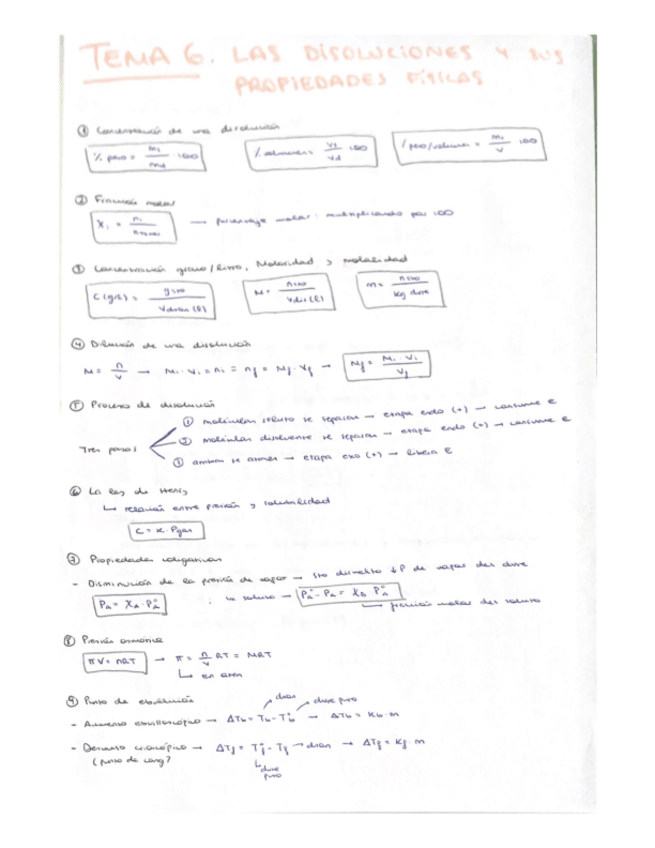 TEMA 6. LAS DISOLUCIONES Y SUS
PROPIEDADES FÍSICAS
① Concentración de una disolución
% peso = ms/md · 100    % volumen = Vs/Vd · 100    % peso/volumen = ms/V · 100
② Fracción molar
Xi = ni/ntotal → porcentaje molar: multiplicando por 100
③ Concentración gramo/litro, Molaridad y molalidad
C (g/L) = g sto/V dson (l)    M = n sto/V dis (l)    m = n sto/kg dsve
④ Dilución de una disolución
M = n/V → Mi · Vi = ni = nf = Mf · Vf → Mf = Mi · Vi/Vf
⑤ Proceso de disolución
Tres pasos
① moléculas soluto se separan → etapa endo (+) → consume E
② moléculas disolvente se separan → etapa endo (+) → consume E
③ ambas se atraen → etapa exo (+) → libera E
⑥ La ley de Henry
↳ relación entre presión y solubilidad
C = K · Pgas
⑦ Propiedades coligativas
- Disminución de la presión de vapor → sto disuelto ↓ P de vapor del dsve
PA = XA · PA° ; un soluto → PA° - PA = XB · PA°
↳ fracción molar del soluto
⑧ Presión osmótica
πV = nRT → π = n/V RT = MRT
↳ en atm
⑨ Punto de ebullición
- Aumento ebulloscópico → ΔTb = Tb - Tb° → ΔTb = Kb · m
dson    dsve puro
- Descenso crioscópico → ΔTf = Tf° - Tf → dson → ΔTf = Kf · m
(punto de cong)
↳ dsve
puro